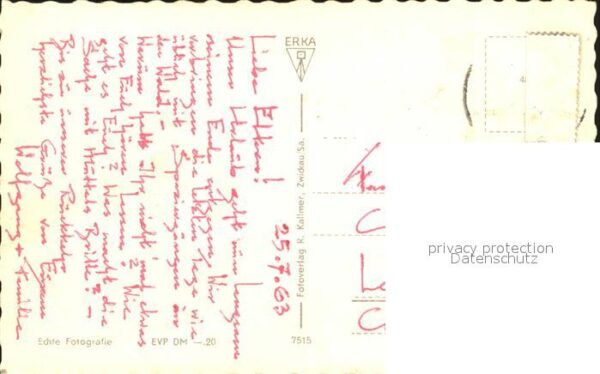 25.7.63
Liebe Eltern!
Unser Urlaub geht nun langsam
seinem Ende entgegen. Wir
verbringen die letzten Tage wie
üblich mit Spaziergängen in
den Wald. –
Warum habt Ihr nicht mal etwas
von Euch hören lassen? Wie
geht es Euch? Was macht die
Sache mit Muttels Brille? –
Bis zu unserer Rückkehr
herzlichste Grüße von Euren
Wolfgang + Familie
ERKA
Fotoverlag R. Kallmer, Zwickau Sa.
Echte Fotografie
EVP DM —.20
7515
privacy protection
Datenschutz